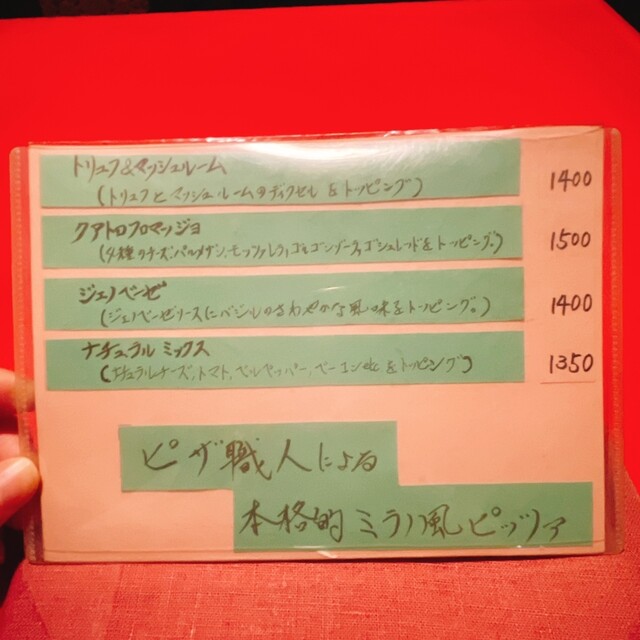 トリュフ&マッシュルーム 1400
(トリュフとマッシュルームのディクセルをトッピング)
クアトロフロマッジョ 1500
(4種のチーズ、パルメザン、モッツァレラ、ゴルゴンゾーラ、ゴシュレッドをトッピング。)
ジェノベーゼ 1400
(ジェノベーゼソースにバジルのさわやかな風味をトッピング。)
ナチュラルミックス 1350
(ナチュラルチーズ、トマト、ベルペッパー、ベーコンetcをトッピング)
ピザ職人による
本格的ミラノ風ピッツァ